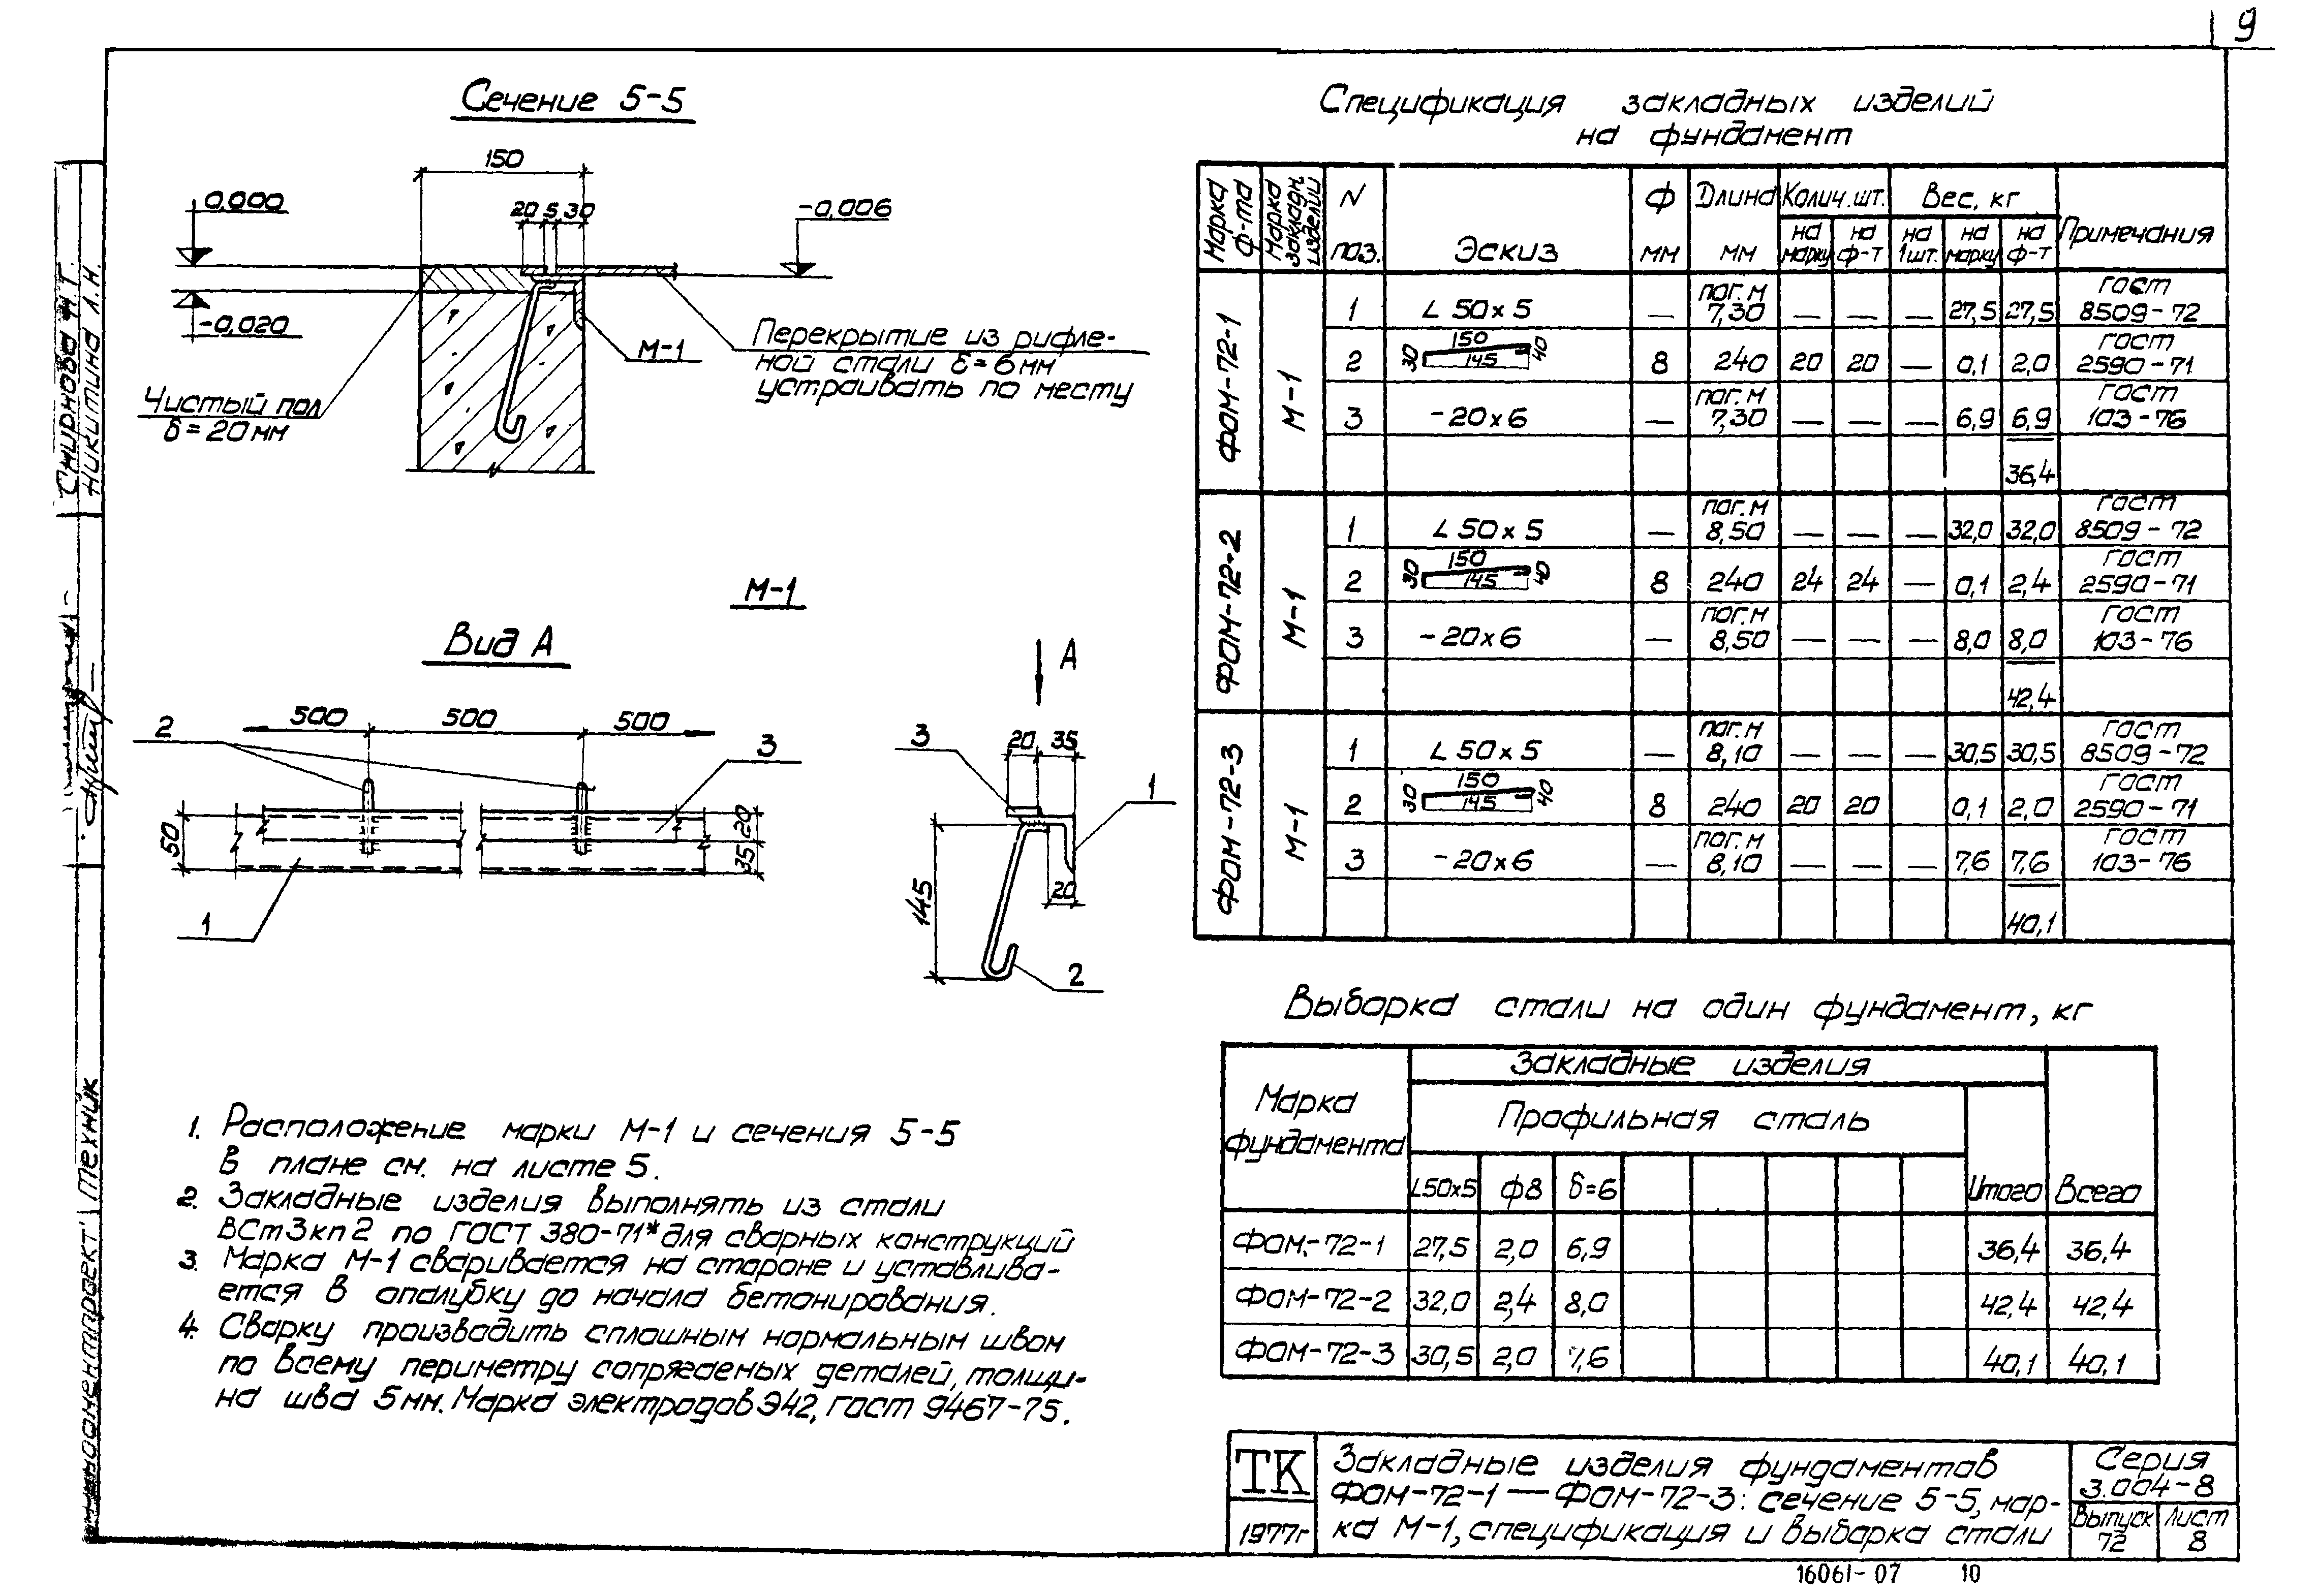 9
Сечение 5-5
150
0,000
20 5 30
-0,006
-0,020
М-1
Перекрытие из рифле-
ной стали δ=6мм
устраивать по месту
Чистый пол
δ=20мм
М-1
Вид А
А
500 500 500
2
3
50
20
35
1
3
20 35
1
145
20
2
1. Расположение марки М-1 и сечения 5-5
в плане см. на листе 5.
2. Закладные изделия выполнять из стали
ВСт3кп2 по ГОСТ 380-71* для сварных конструкций
3. Марка М-1 сваривается на стороне и уставлива-
ется в опалубку до начала бетонирования.
4. Сварку производить сплошным нормальным швом
по всему периметру сопрягаемых деталей, толщи-
на шва 5мм. Марка электродов Э42, ГОСТ 9467-75.
Спецификация закладных изделий
на фундамент
Марка ф-та
Марка закладн. изделий
N поз.
Эскиз
Ф мм
Длина мм
Колич. шт.
на марку
на ф-т
Вес, кг
на 1шт.
на марку
на ф-т
Примечания
ФОМ-72-1 М-1
1 L 50×5 — пог.м 7,30 — — — 27,5 27,5 ГОСТ 8509-72
2 30 150 145 40 8 240 20 20 — 0,1 2,0 ГОСТ 2590-71
3 -20×6 — пог.м 7,30 — — — 6,9 6,9 ГОСТ 103-76
36,4
ФОМ-72-2 М-1
1 L 50×5 — пог.м 8,50 — — — 32,0 32,0 ГОСТ 8509-72
2 30 150 145 40 8 240 24 24 — 0,1 2,4 ГОСТ 2590-71
3 -20×6 — пог.м 8,50 — — — 8,0 8,0 ГОСТ 103-76
42,4
ФОМ-72-3 М-1
1 L 50×5 — пог.м 8,10 — — — 30,5 30,5 ГОСТ 8509-72
2 30 150 145 40 8 240 20 20 — 0,1 2,0 ГОСТ 2590-71
3 -20×6 — пог.м 8,10 — — — 7,6 7,6 ГОСТ 103-76
40,1
Выборка стали на один фундамент, кг
Марка фундамента
Закладные изделия
Профильная сталь
L50×5 ф8 δ=6 Итого Всего
ФОМ-72-1 27,5 2,0 6,9 36,4 36,4
ФОМ-72-2 32,0 2,4 8,0 42,4 42,4
ФОМ-72-3 30,5 2,0 7,6 40,1 40,1
ТК
1977г
Закладные изделия фундаментов
ФОМ-72-1 — ФОМ-72-3: сечение 5-5, мар-
ка М-1, спецификация и выборка стали
Серия
3.004-8
Выпуск
72
Лист
8
16061-07 10
Смирнова Н.Г.
Никитина Л.Н.
Техник